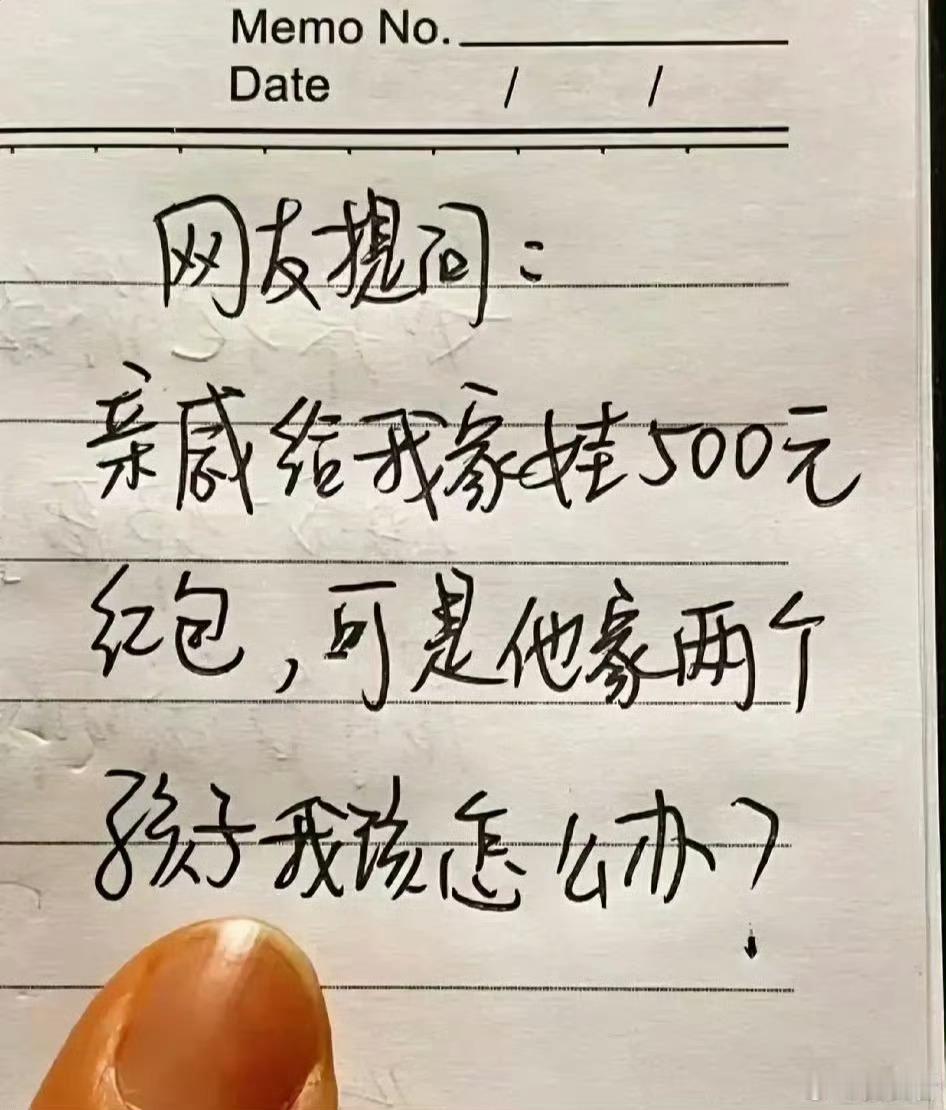 Memo No.
Date / /
网友提问：
亲戚给我家娃500元
红包，可是他家两个
孩子我该怎么办？